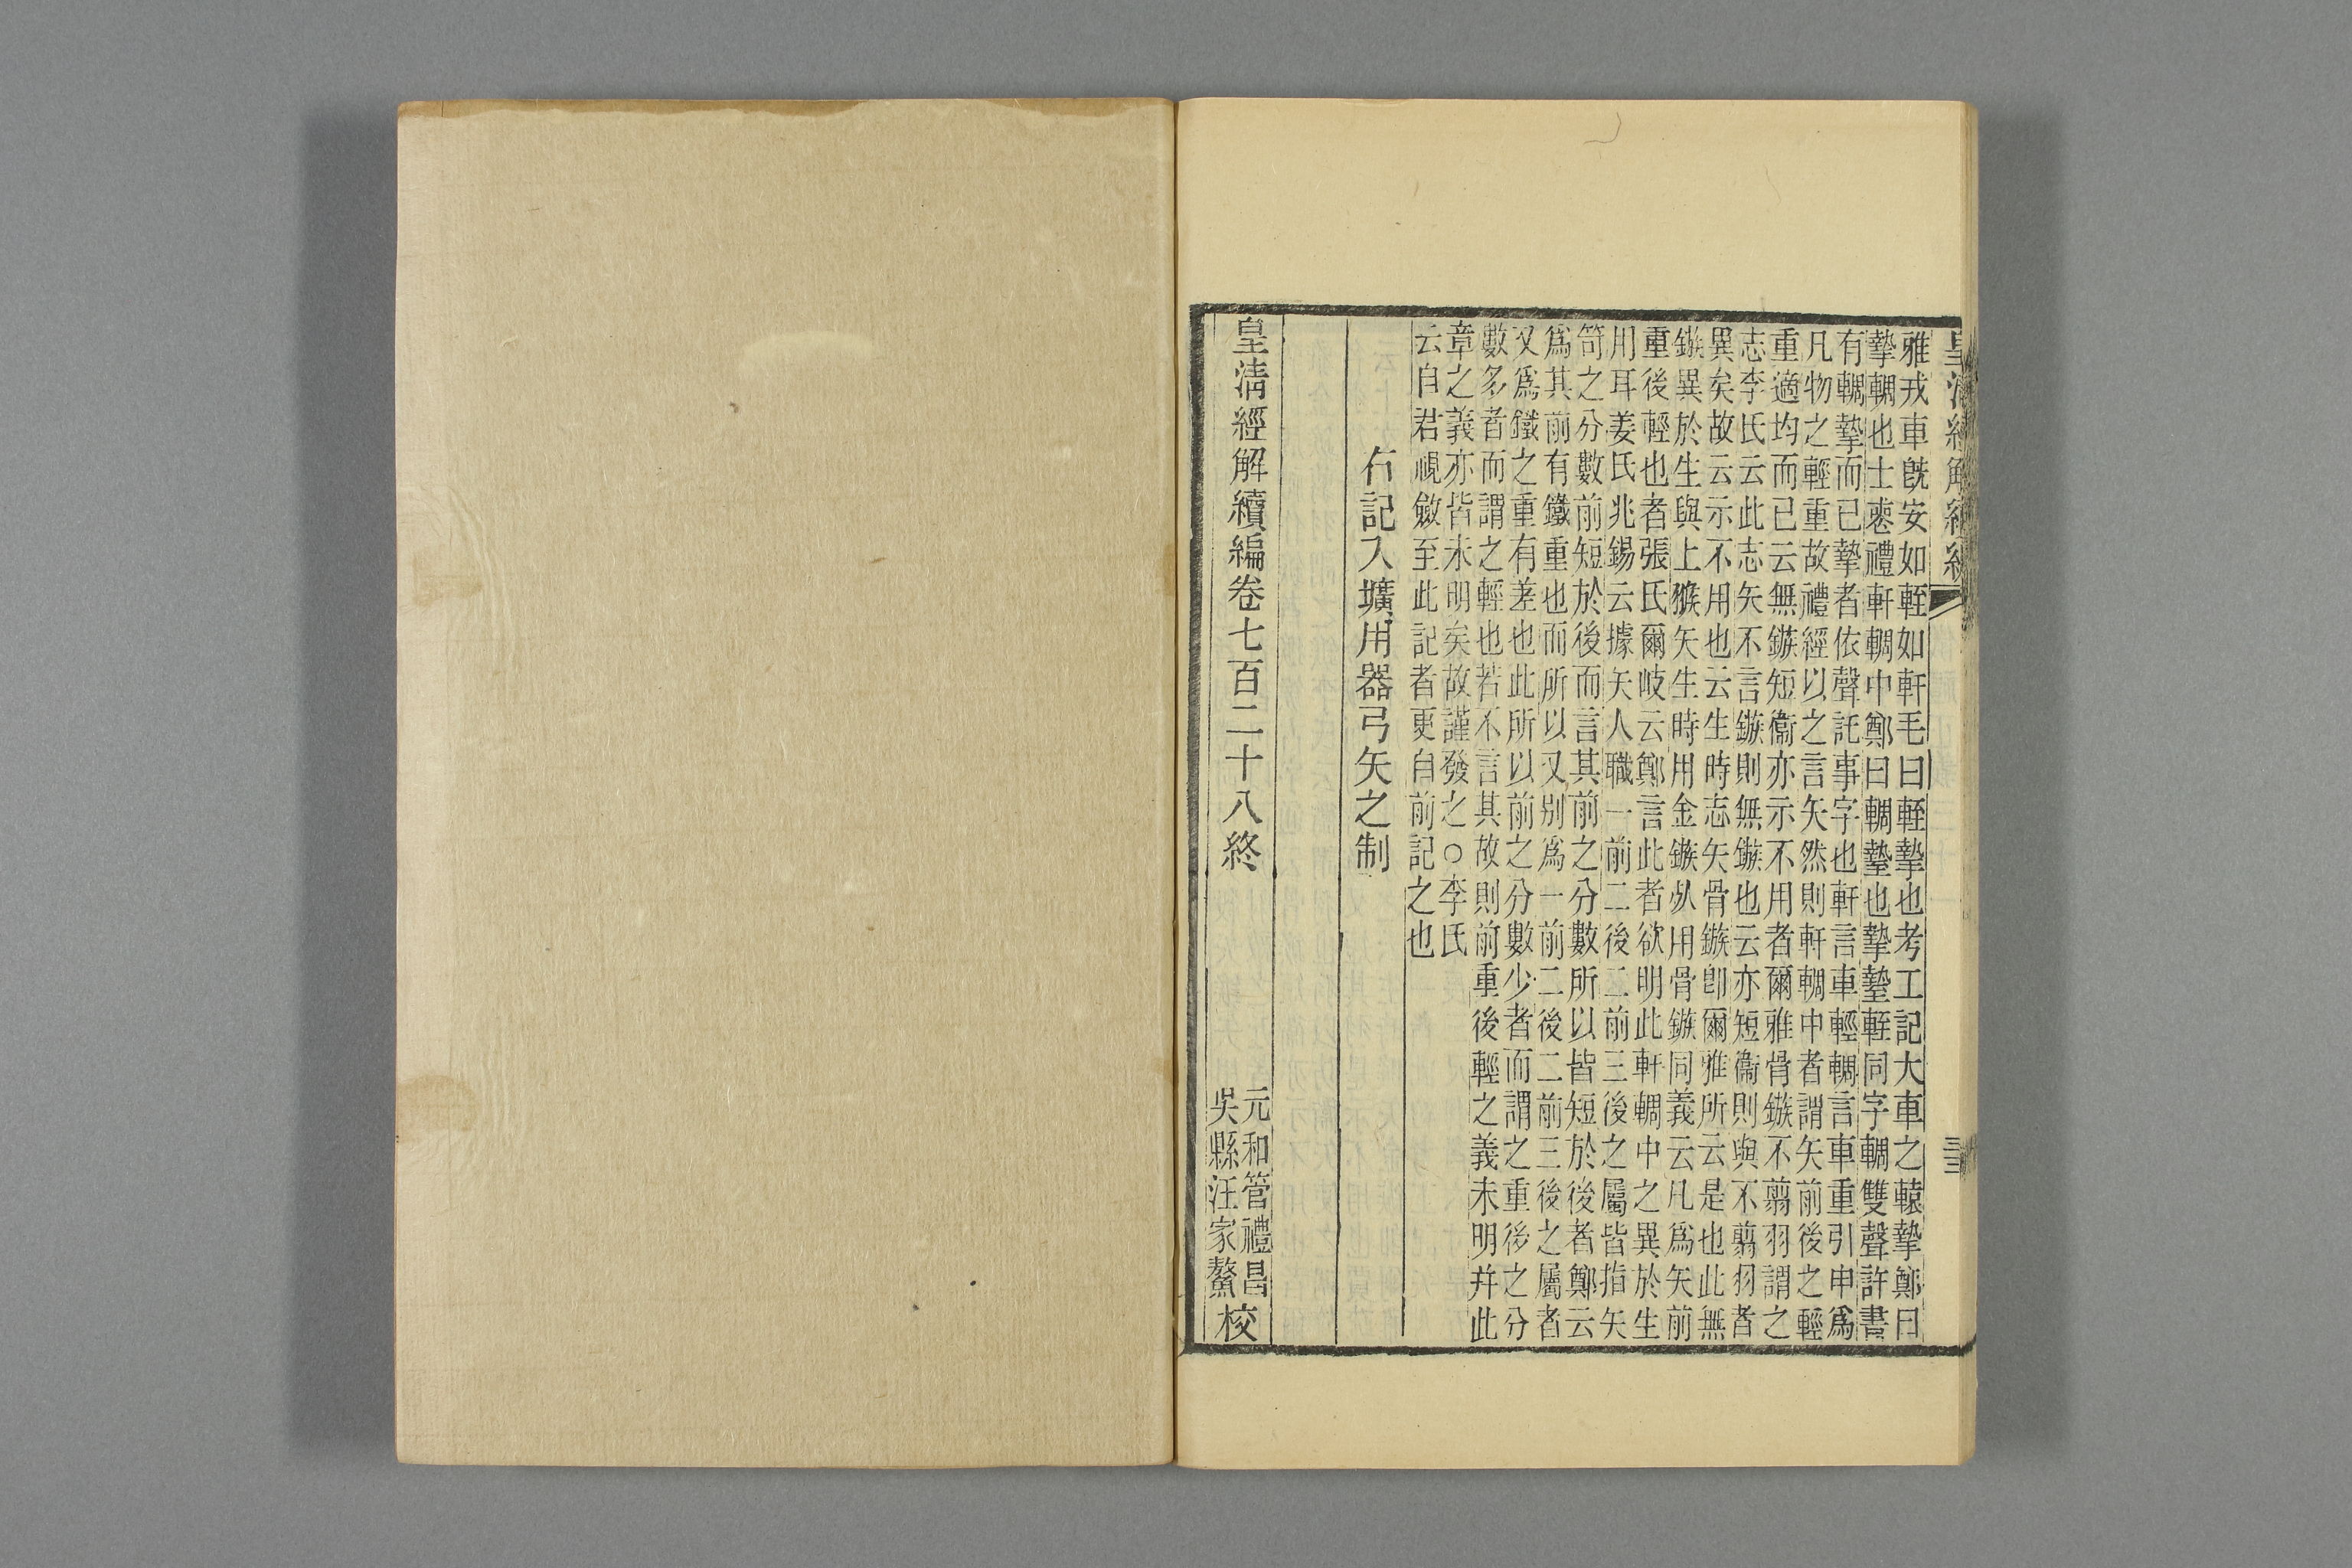 皇清經解續編
雅戎車旣安如輊如軒毛曰輊摯也考工記大車之轅摯鄭曰
摯輖也士喪禮軒輖中鄭曰輖蟄也摯蟄輊同字輖雙聲許書
有輖摯而已摯者依聲託事字也軒言車輕輖言車重引申爲
凡物之輕重故禮經以之言矢然則軒輖中者謂矢前後之輕
重適均而已云無鏃短衞亦示不用者爾雅骨鏃不翦羽謂之
志李氏云此志矢不言鏃則無鏃也云亦短衞則與不翦羽者
異矣故云示不用也云生時志矢骨鏃卽爾雅所云是也此無
鏃異於生與上猴矢生時用金鏃㕥用骨鏃同義云凡爲矢前
重後輕也者張氏爾岐云鄭言此者欲明此軒輖中之異於生
用耳姜氏兆錫云據矢人職一前二後二前三後之屬皆指矢
笴之分數前短於後而言其前之分數所以皆短於後者鄭云
爲其前有鐵重也而所以又别爲一前二後二前三後之屬者
又爲鐵之重有差也此所以前之分數少者而謂之重後之分
數多者而謂之輕也若不言其故則前重後輕之義未明幷此
章之義亦皆未明矣故謹發之○李氏
云自君視斂至此記者更自前記之也
右記入壙用器弓矢之制
皇清經解續編卷七百二十八終
元和管禮昌
吳縣汪家鰲
校